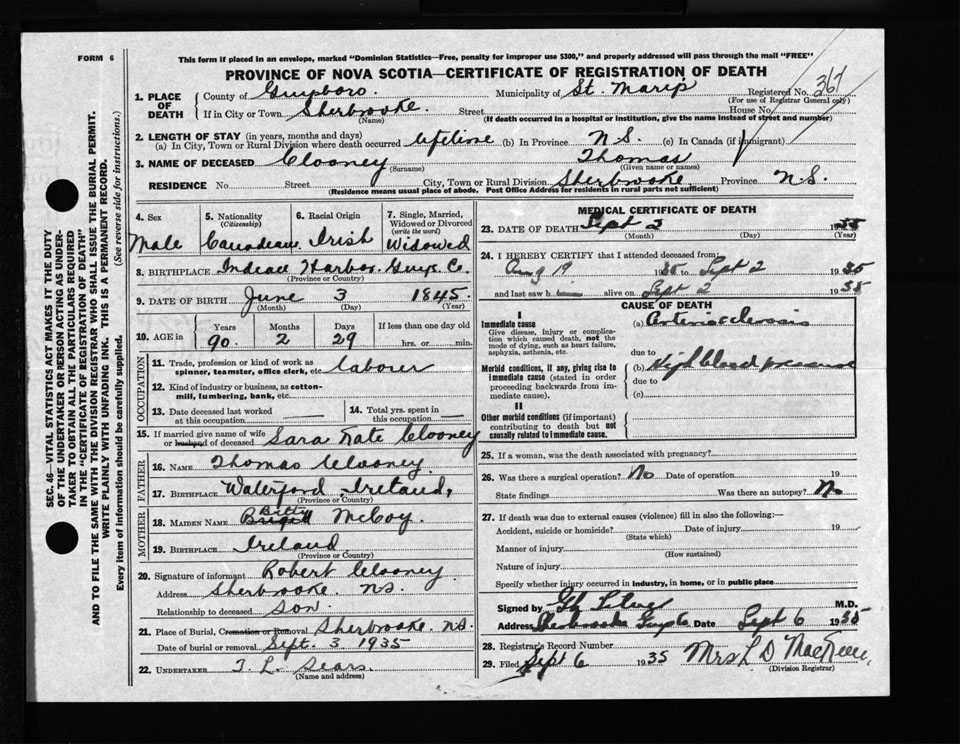 FORM 6
This form if placed in an envelope, marked "Dominion Statistics—Free, penalty for improper use $300," and properly addressed will pass through the mail "FREE"
PROVINCE OF NOVA SCOTIA—CERTIFICATE OF REGISTRATION OF DEATH
1. PLACE OF DEATH
County of Guysboro. Municipality of St. Mary's Registered No. 367
(For use of Registrar General only)
If in City or Town Sherbrooke. Street House No.
(Name) (If death occurred in a hospital or institution, give the name instead of street and number)
2. LENGTH OF STAY (in years, months and days)
(a) In City, Town or Rural Division where death occurred lifetime (b) In Province N.S. (c) In Canada (if immigrant)
3. NAME OF DECEASED Clooney Thomas
(Surname) (Given name or names)
RESIDENCE No. Street City, Town or Rural Division Sherbrooke Province N.S.
(Residence means usual place of abode. Post Office Address for residents in rural parts not sufficient)
4. Sex
Male
5. Nationality
(Citizenship)
Canadean
6. Racial Origin
Irish
7. Single, Married, Widowed or Divorced
(write the word)
Widowed
8. BIRTHPLACE Indean Harbor. Guys. Co.
(Province or Country)
9. DATE OF BIRTH June 3 1845.
(Month) (Day) (Year)
10. AGE in
Years Months Days If less than one day old
90. 2 29 hrs. or min.
OCCUPATION
11. Trade, profession or kind of work as
spinner, teamster, office clerk, etc. laborer
12. Kind of industry or business, as cotton-
mill, lumbering, bank, etc.
13. Date deceased last worked
at this occupation
14. Total yrs. spent in
this occupation
15. If married give name of wife
or husband of deceased Sara Kate Clooney
FATHER
16. NAME Thomas Clooney.
17. BIRTHPLACE Waterford, Ireland,
(Province or Country)
MOTHER
18. MAIDEN NAME McCoy.
19. BIRTHPLACE Ireland.
(Province or Country)
20. Signature of informant Robert Clooney
Address Sherbrooke. N.S.
Relationship to deceased Son.
21. Place of Burial, Cremation or Removal Sherbrooke. N.S.
Date of burial or removal Sept. 3. 1935
22. UNDERTAKER J. L. Sears.
(Name and address)
MEDICAL CERTIFICATE OF DEATH
23. DATE OF DEATH Sept 2 1935
(Month) (Day) (Year)
24. I HEREBY CERTIFY that I attended deceased from
Aug 19 1935 to Sept 2 1935
and last saw him alive on Sept 2 1935
CAUSE OF DEATH
I
Immediate cause
Give disease, injury or complica-
tion which caused death, not the
mode of dying, such as heart failure,
asphyxia, asthenia, etc.
(a) Arterio sclerosis
due to
Morbid conditions, if any, giving rise to
immediate cause (stated in order
proceeding backwards from im-
mediate cause).
(b) High blood pressure
due to
(c)
II
Other morbid conditions (if important)
contributing to death but not
causally related to immediate cause.
25. If a woman, was the death associated with pregnancy?
26. Was there a surgical operation? No Date of operation 19
State findings Was there an autopsy? No
27. If death was due to external causes (violence) fill in also the following:—
Accident, suicide or homicide? Date of injury 19
(State which)
Manner of injury
(How sustained)
Nature of injury
Specify whether injury occurred in industry, in home, or in public place
Signed by M.D.
Address Sherbrooke Guys Co Date Sept 6 1935
28. Registrar's Record Number
29. Filed Sept 6 1935 Mrs L D MacKeen.
(Division Registrar)
SEC. 46—VITAL STATISTICS ACT MAKES IT THE DUTY
OF THE UNDERTAKER OR PERSON ACTING AS UNDER-
TAKER TO OBTAIN ALL THE PARTICULARS REQUIRED
IN THE "CERTIFICATE OF REGISTRATION OF DEATH"
AND TO FILE THE SAME WITH THE DIVISION REGISTRAR WHO SHALL ISSUE THE BURIAL PERMIT.
WRITE PLAINLY WITH UNFADING INK. THIS IS A PERMANENT RECORD.
Every item of information should be carefully supplied. (See reverse side for instructions.)